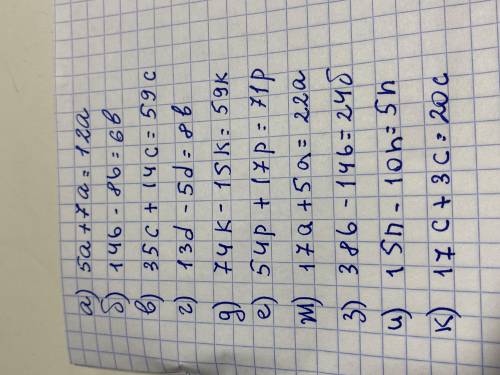 а) 5a + 7a = 12a
б) 14b - 8b = 6b
в) 35c + 14c = 59c
г) 13d - 5d = 8b
д) 74k - 15k = 59k
е) 54p + 17p = 71p
ж) 17a + 5a = 22a
з) 38b - 14b = 24б
и) 15n - 10n = 5n
к) 17c + 3c = 20c